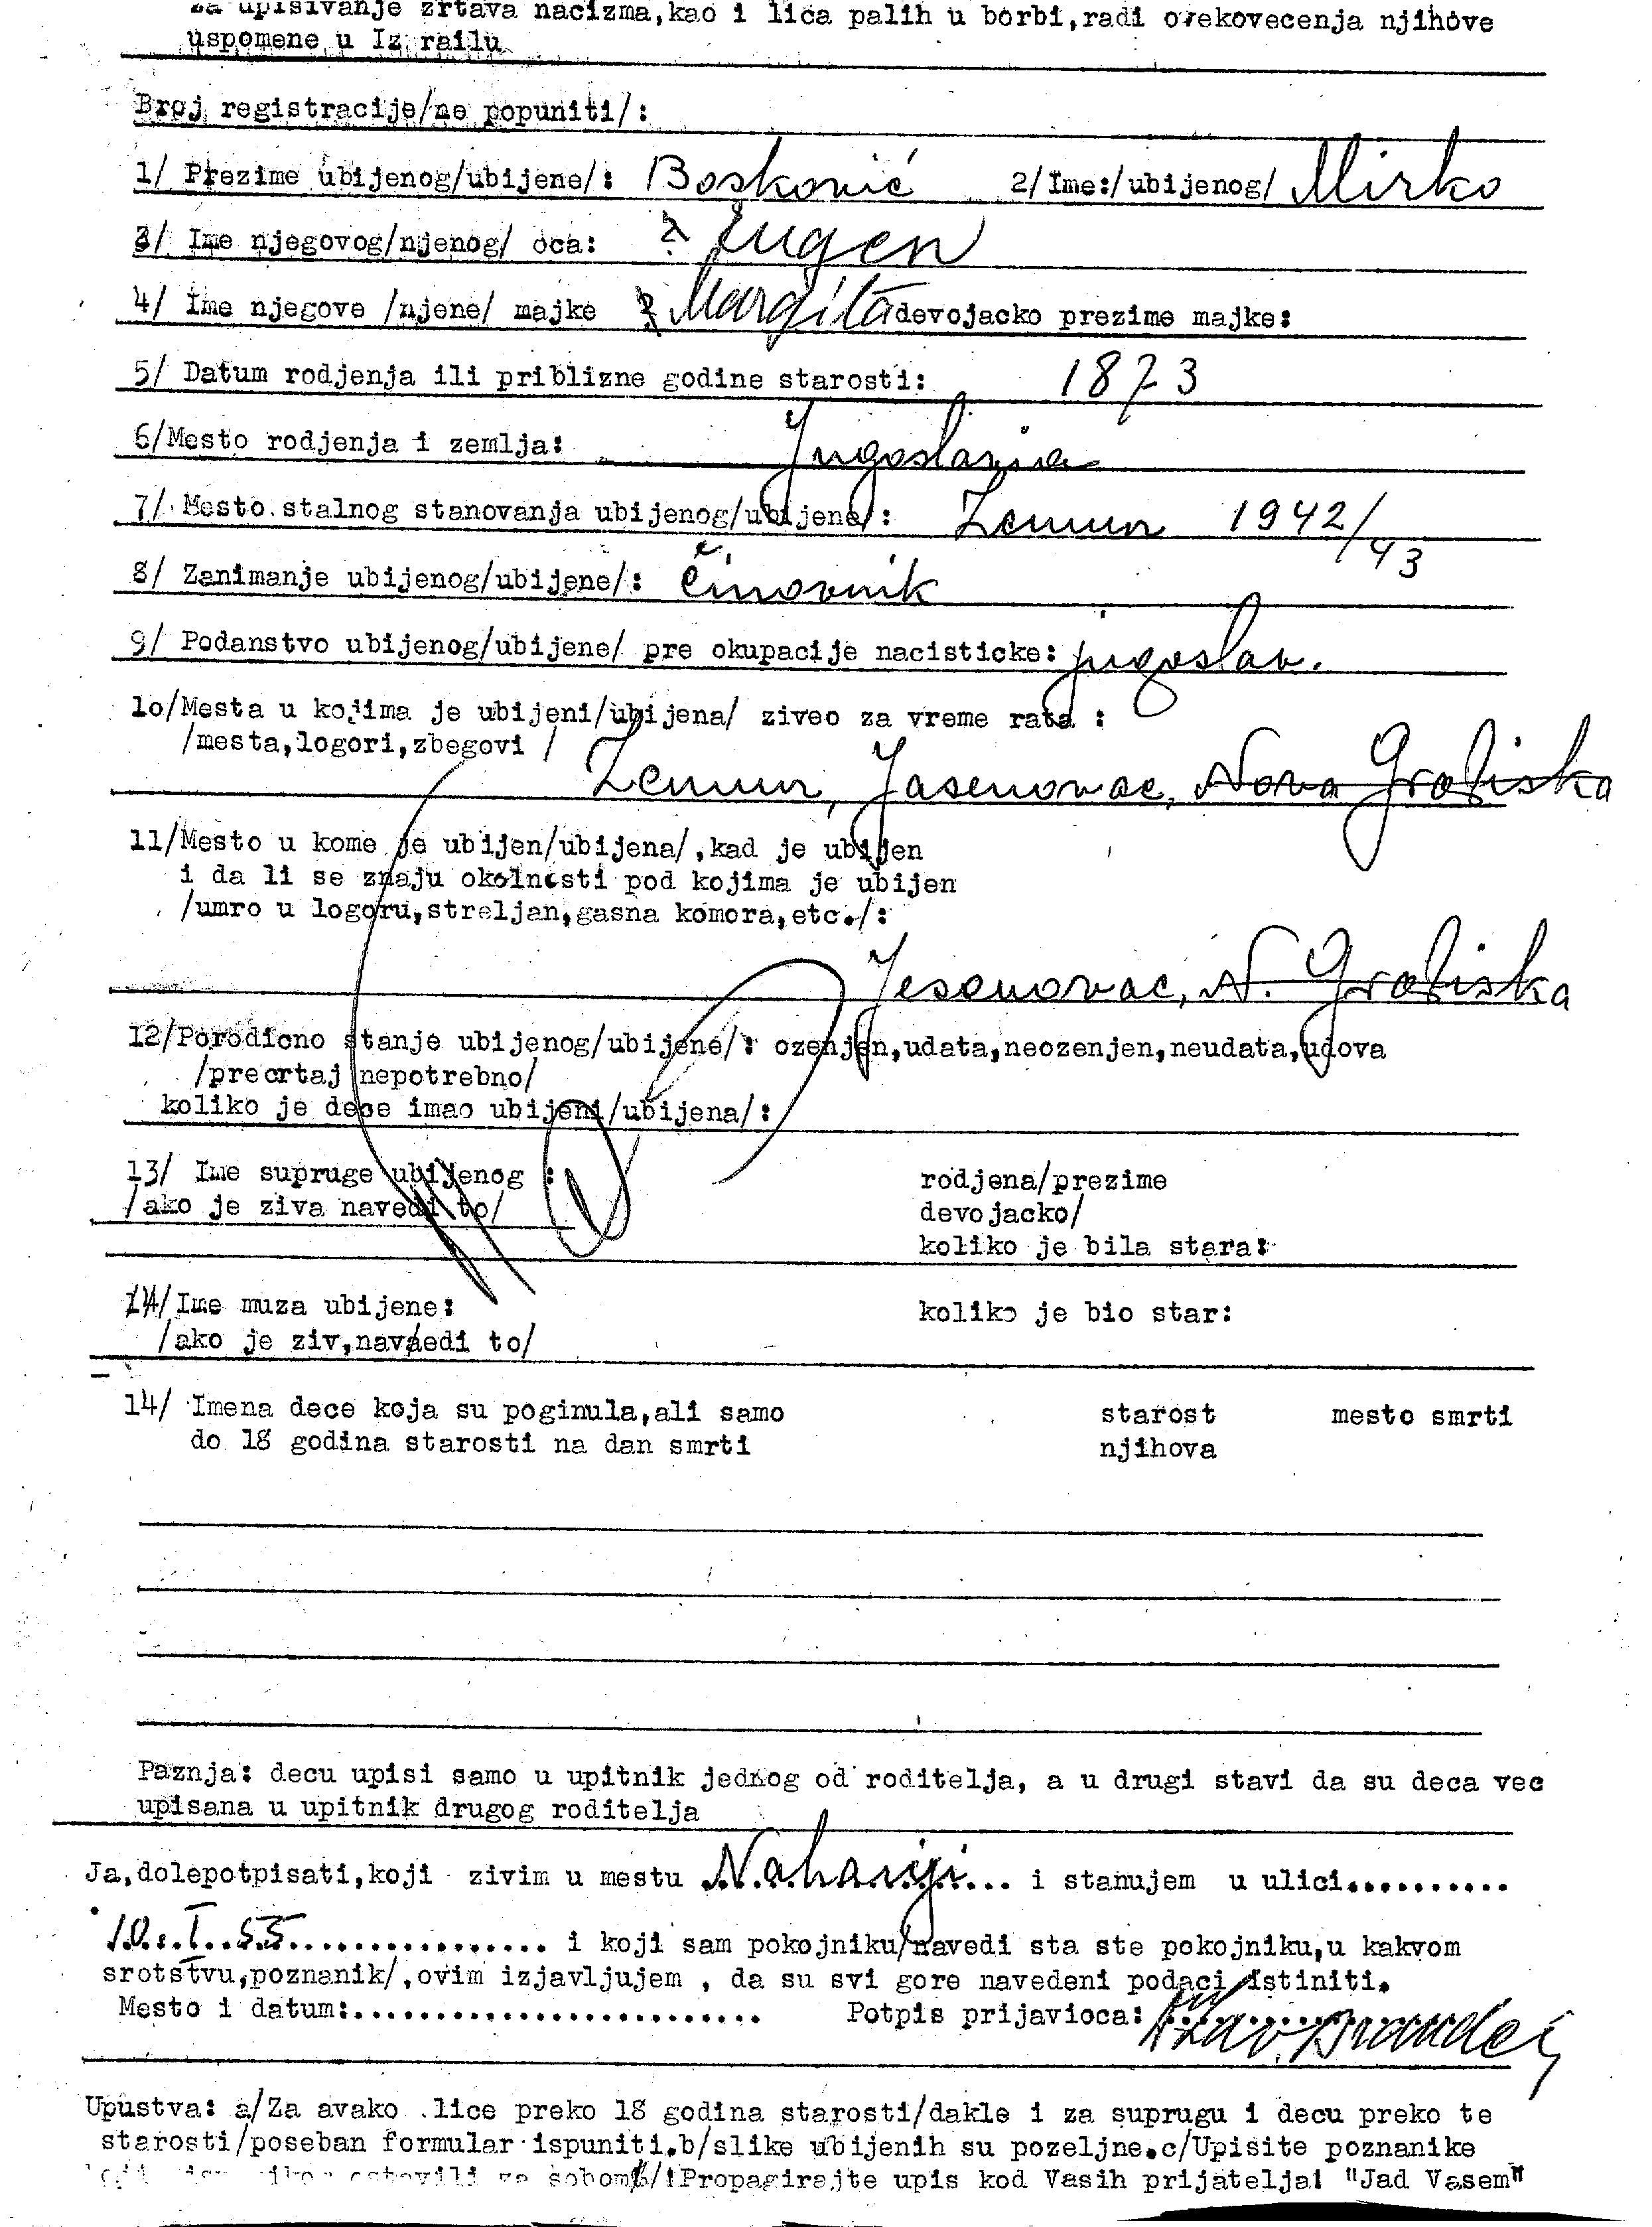 za upisivanje zrtava nacizma,kao i lica palih u borbi,radi ovekovecenja njihove
uspomene u Iz railu
Broj registracije/ne popuniti/:
1/ Prezime ubijenog/ubijene/: Bosković 2/Ime:/ubijenog/ Mirko
3/ Ime njegovog/njenog/ oca: ? Eugen
4/ Ime njegove /njene/ majke ? Margita devojacko prezime majke:
5/ Datum rodjenja ili priblizne godine starosti: 1873
6/Mesto rodjenja i zemlja: Jugoslavia
7/ Mesto stalnog stanovanja ubijenog/ubijene/: Zemun 1942/43
8/ Zanimanje ubijenog/ubijene/: činovnik
9/ Podanstvo ubijenog/ubijene/ pre okupacije nacisticke: jugoslav.
1o/Mesta u kojima je ubijeni/ubijena/ ziveo za vreme rata :
/mesta,logori,zbegovi /
Zemun, Jasenovac, Nova Gradiska
11/Mesto u kome je ubijen/ubijena/,kad je ubijen
i da li se znaju okolnosti pod kojima je ubijen
/umro u logoru,streljan,gasna komora,etc./:
Jesenovac, N. Gradiska
12/Porodicno stanje ubijenog/ubijene/: ozenjen,udata,neozenjen,neudata,udova
/precrtaj nepotrebno/
koliko je dece imao ubijeni/ubijena/:
13/ Ime supruge ubijenog : rodjena/prezime
/ako je ziva navedi to/ devojacko/
koliko je bila stara:
14/Ime muza ubijene: koliko je bio star:
/ako je ziv,navaedi to/
14/ Imena dece koja su poginula,ali samo starost mesto smrti
do 18 godina starosti na dan smrti njihova
Paznja: decu upisi samo u upitnik jednog od roditelja, a u drugi stavi da su deca vec
upisana u upitnik drugog roditelja
Ja,dolepotpisati,koji zivim u mestu Nahariji... i stanujem u ulici..........
10.I.55................ i koji sam pokojniku/navedi sta ste pokojniku,u kakvom
srotstvu,poznanik/,ovim izjavljujem , da su svi gore navedeni podaci istiniti.
Mesto i datum:......................... Potpis prijavioca:
Upustva: a/Za avako lice preko 18 godina starosti/dakle i za suprugu i decu preko te
starosti/poseban formular ispuniti.b/slike ubijenih su pozeljne.c/Upisite poznanike
ostavili za sobom/!Propagirajte upis kod Vasih prijatelja! "Jad Vasem"